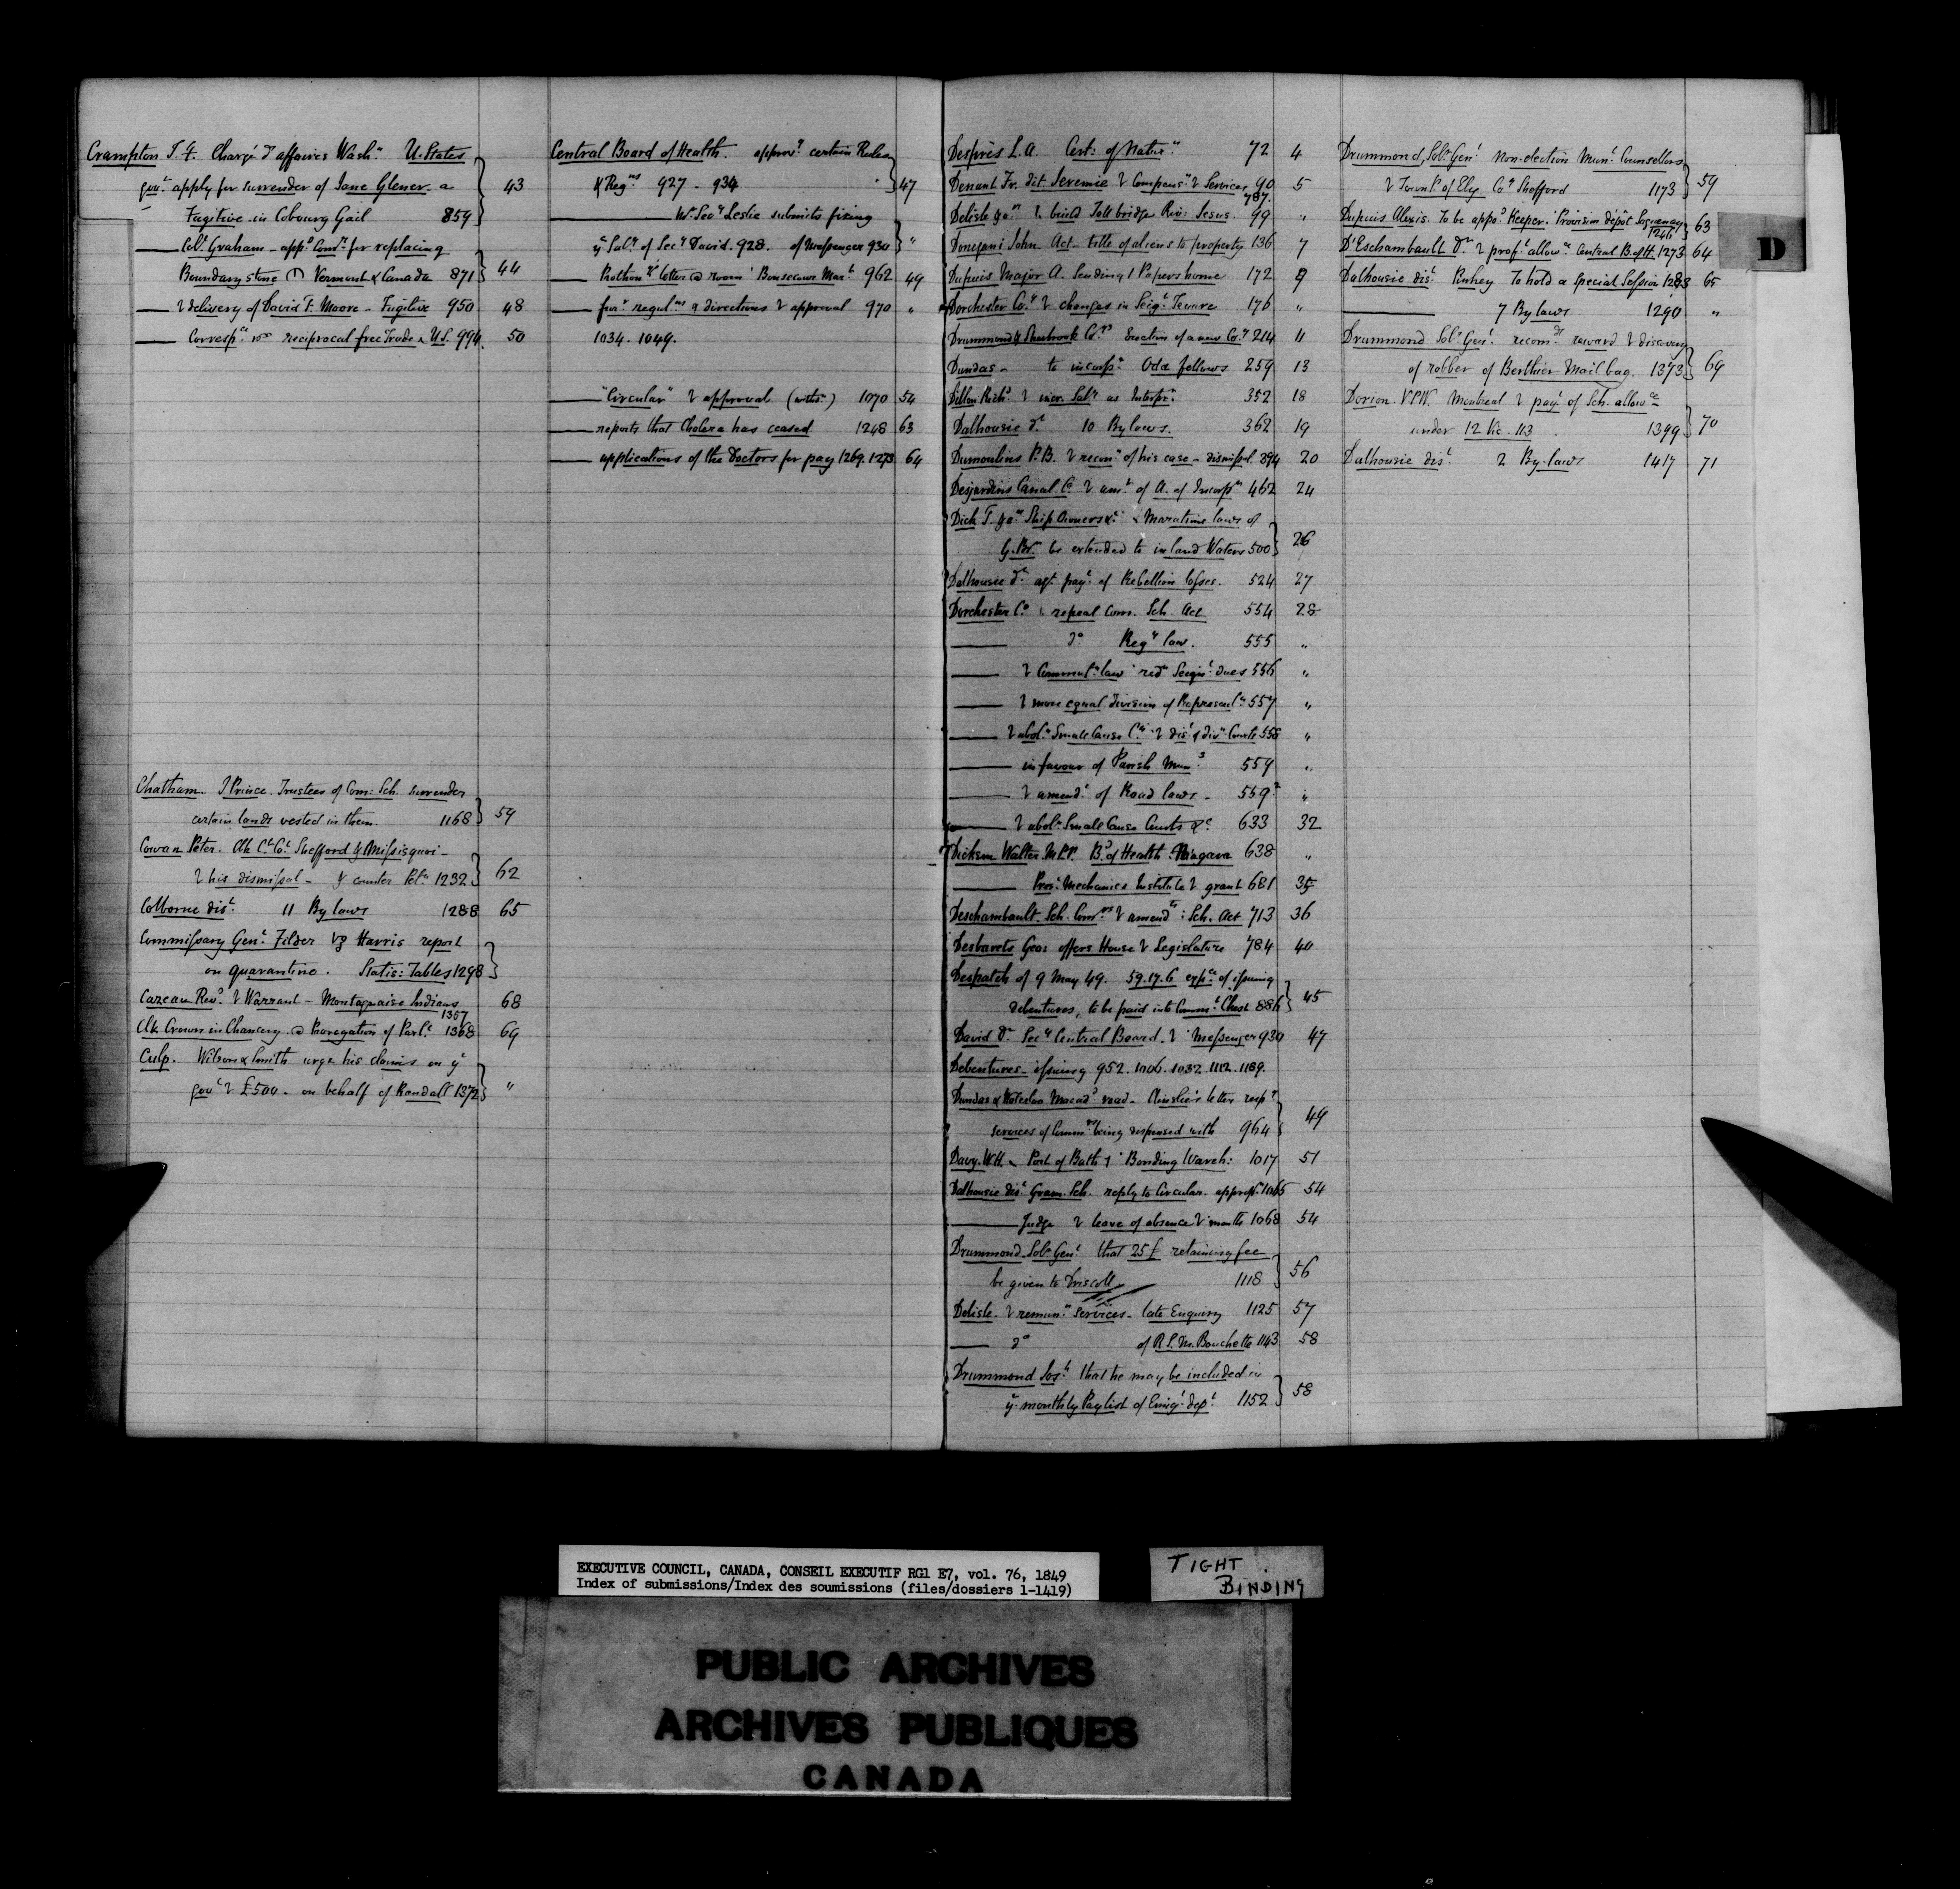 Crampton J. F. Chargé d'affaires Wash.n U. States
gov.t apply for surrender of Jane Glener a 43
Fugitive in Cobourg Gail 859
Col.l Graham - app.d Com.r for replacing
Boundary stone Vermont & Canada 871 44
delivery of David F. Moore - Fugitive 950 48
Corresp.ce reciprocal free Trade U.S. 994. 50
Chatham. J. Prince. Trustees of Com: Sch. surrender
certain lands vested in them. 1168 59
Cowan Peter. Clk C.t Co.t Shefford & Missisquoi -
his dismissal - & counter Pet.n 1232 62
Colborne dis.t 11 By laws 1288 65
Commissary Gen.l Filder Harris report
on quarantine. Statis: Tables 1298
Cazeau Rev.d Warrant - Montagnaise Indians 68
1357
Clk Crown in Chancery @ Prorogation of Parl.t 1368 69
Culp. Wilson & Smith urge his claims on ye
gov.t £500 - on behalf of Randall 1372 "
Central Board of Health. approv.l certain Rules
& Reg.ns 927 - 934 47
W. Sec.y Leslie submits fixing
ye Sal.y of Sec.y David. 928. of Messenger 930 "
letter @ room Bonsecours Mar.t 962 49
fur.r regul.ns & directions approval 970 "
1034. 1049.
"Circular" approval 1070 54
reports that Cholera has ceased 1248 63
applications of the Doctors for pay 1269. 1273 64
Desprès L. A. Cert: of Natur.n 72 4
Denant Fr. dit Jeremie Compens.n Services 90 5
787.
Delisle & o.rs build Toll bridge Riv: Jesus. 99 "
Donegani John Act - title of aliens to property 136 7
Dupuis Major A. Sending Papers home 172 9
Dorchester Co.y changes in Seig.l Tenure 176 "
Drummond & Sherbrook Co.ys Erection of a new Co.y 214 11
Dundas - to incorp.n Odd fellows 259 13
Dillon Rich.d incr. Sal.y as Interpr.r 352 18
Dalhousie d.t 10 By laws. 362 19
Dumoulins P.B. recon.n of his case - dismissal 394 20
Desjardins Canal Co am.t of A. of Incorp.n 462 24
Dick T. & o.rs Ship Owners &c Maratime laws of
G. Br. be extended to inland Waters 500 26
Dalhousie d.t ag.t pay.t of Rebellion losses. 524 27
Dorchester Co repeal Com. Sch. Act 554 28
do Reg.y law. 555 "
Commut.n law red.n Seign.l dues 556 "
more equal division of Represent.n 557 "
abol.n Small Cause C.ts dis.t & div.n Courts 558 "
in favour of Parish Mun.s 559 "
amend.t of Road laws - 559 "
abol.n Small Cause Courts &c 633 32
Dickson Walter M.P.P. B.d of Health: Niagara 638 "
Pres.t Mechanics Institute grant 681 35
Deschambault. Sch. Com.rs amend.t: Sch. Act 713 36
Desbarets Geo: offers House Legislature 784 40
Despatch of 9 May 49. 59.17.6 exp.ce of issuing
debentures, to be paid into Comm.t Chest 886 45
David Dr Sec.y Central Board - Messenger 930 47
Debentures - issuing 952. 1006. 1032. 1112. 1189.
Dundas & Waterloo Macad.d road - Ainslie's letter resp.g
services of Comm.rs being dispensed with 964 49
Davy. W.H. Port of Bath Bonding Wareh: 1017 51
Dalhousie dis.t Gram. Sch. reply to Circular. approp.n 1065 54
Judge leave of absence month 1068 54
Drummond. Sol.r Gen.l that 25£ retaining fee
be given to Driscoll 1118 56
Delisle - remun.n services - late Enquiry 1125 57
do of R.S.M. Bouchette 1143 58
Drummond Jos.h that he may be included in
ye monthly Pay list of Emig.t dep.t 1152 58
Drummond, Sol.r Gen.l Non-election Mun.l Counsellors
Town.p of Ely. Co.y Shefford 1173 59
Dupuis Alexis. To be app.d Keeper. Provision dépôt Saguenay
1246 63
D'Eschambault Dr prof.l allow.ce Central B. of H. 1273 64
Dalhousie dis.t Pinhey To hold a Special Session 1283 65
7 By laws 1290 "
Drummond Sol.r Gen.l recom.ds reward discovery
of robber of Berthier Mail bag. 1373 69
Dorion. V.P.W. Montreal pay.t of Sch. allow.ce
under 12 Vic. 113 1399 70
Dalhousie dis.t 2 By-laws 1417 71
D
EXECUTIVE COUNCIL, CANADA, CONSEIL EXECUTIF RG1 E7, vol. 76, 1849
Index of submissions/Index des soumissions (files/dossiers 1-1419)
TIGHT
BINDING
PUBLIC ARCHIVES
ARCHIVES PUBLIQUES
CANADA